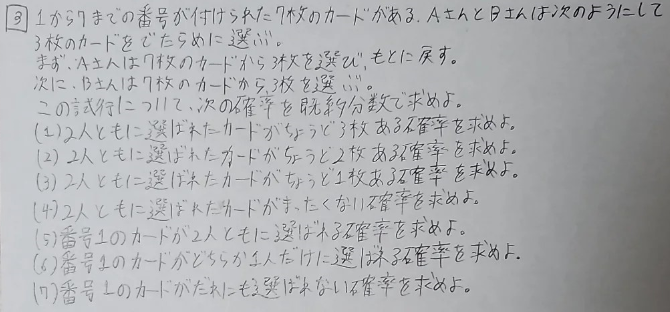 3 1から7までの番号が付けられた7枚のカードがある. AさんとBさんは次のようにして
3枚のカードをでたらめに選ぶ。
まず、Aさんは7枚のカードから3枚を選び、もとに戻す。
次に、Bさんは7枚のカードから、3枚を選ぶ。
この試行について、次の確率を既約分数で求めよ。
(1) 2人ともに選ばれたカードがちょうど3枚ある確率を求めよ。
(2) 2人ともに選ばれたカードがちょうど2枚ある確率を求めよ。
(3) 2人ともに選ばれたカードがちょうど1枚ある確率を求めよ。
(4) 2人ともに選ばれたカードがまったくない確率を求めよ。
(5) 番号1のカードが2人ともに選ばれる確率を求めよ。
(6) 番号1のカードがどちらか1人だけに選ばれる確率を求めよ。
(7) 番号1のカードがだれにも選ばれない確率を求めよ。